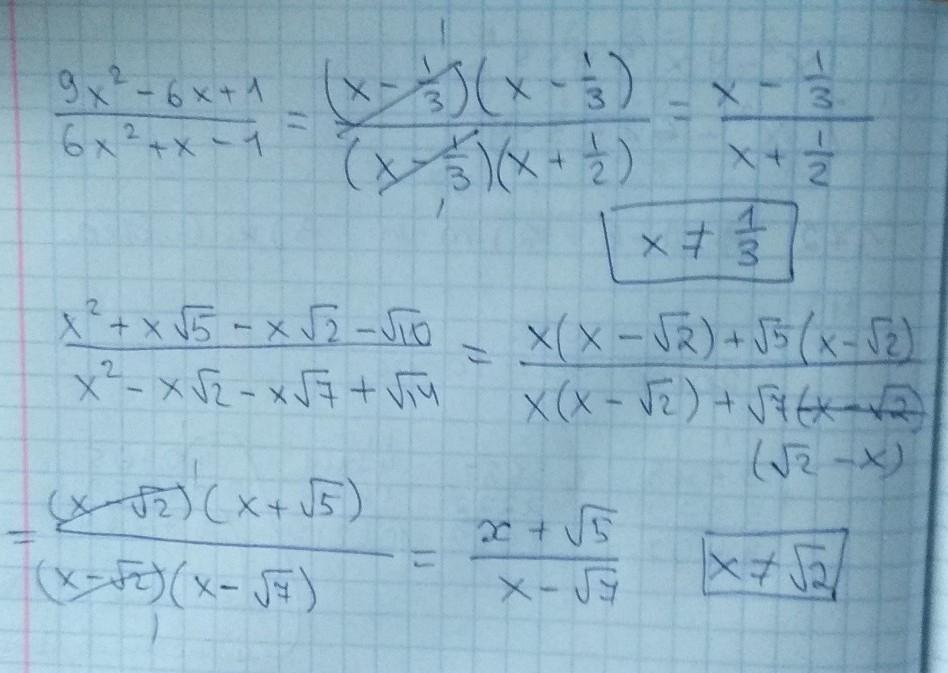 (9x² - 6x + 1)/(6x² + x - 1) = ((x - 1/3)(x - 1/3))/((x - 1/3)(x + 1/2)) = (x - 1/3)/(x + 1/2)
x ≠ 1/3
(x² + x√5 - x√2 - √10)/(x² - x√2 - x√7 + √14) = (x(x - √2) + √5(x - √2))/(x(x - √2) + √7(x - √2)
(√2 - x)
= ((x - √2)(x + √5))/((x - √2)(x - √7)) = (x + √5)/(x - √7) x ≠ √2